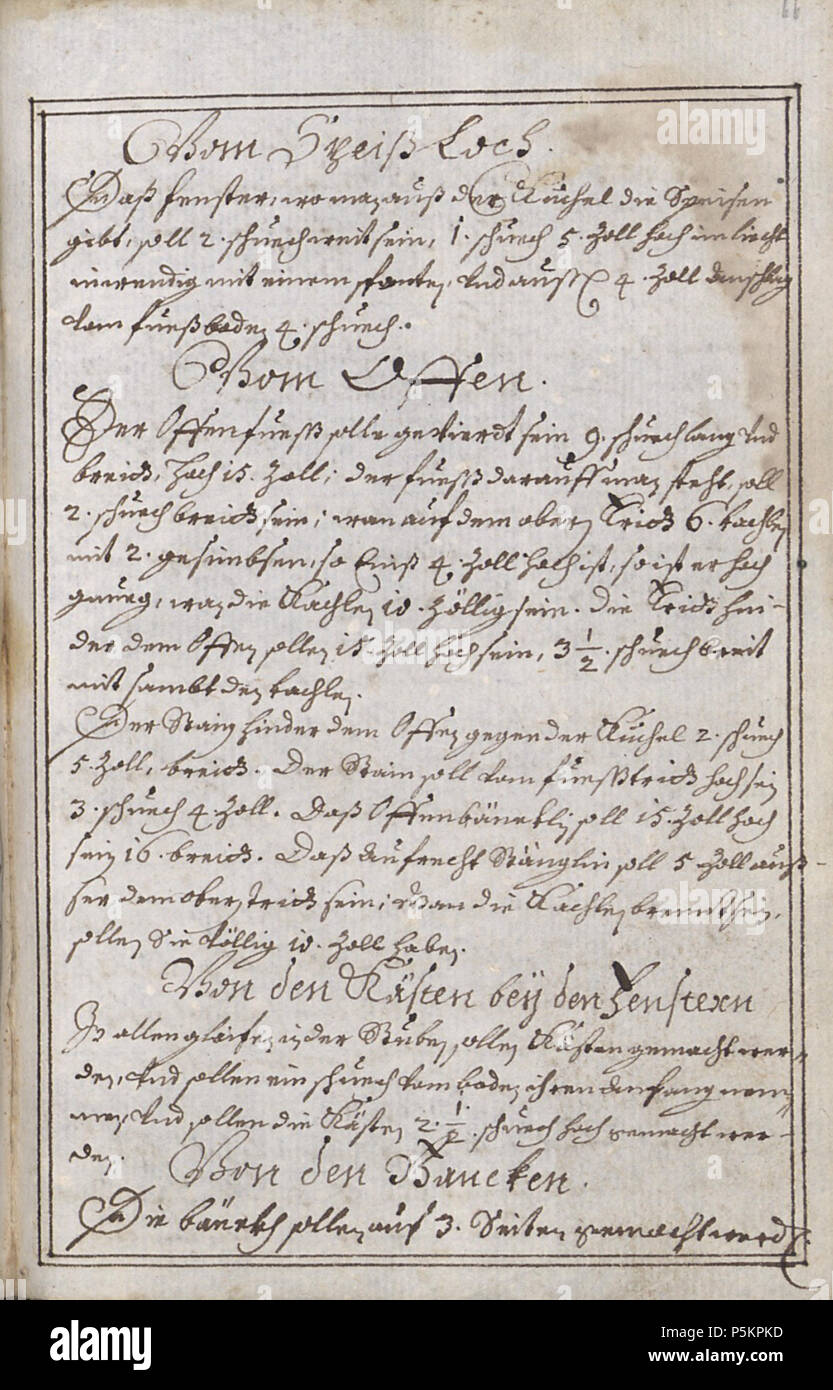 66
Vom Speiß Loch.
Daß fenster, wo man auß der Kuchel die Speisen
gibt, soll 2. schuech weit sein, 1. schuech 5. Zoll hoch im liecht
inwendig mit einem pfosten, und 4. Zoll anschlag
vom fueßboden 4. schuech.
Vom Offen.
Der Offenfueß solle gevierdt sein 9. schuech lang und
breidt, hoch 15. Zoll; der fueß darauff man steht, soll
2. schuech breidt sein; wan auf dem obern tridt 6. kachlen
mit 2. gesimbsen, so 4. Zoll hoch ist, so ist er hoch
gnueg, wan die Kachlen 10. Zöllig sein. Die tridt hin-
der dem Offen sollen 15. Zoll hoch sein, 3 1/2. schuech breit
mit sambt den kachlen.
Der Stain hinder dem Offen gegen der Kuchel 2. schuech
5. Zoll, breidt. Der Stain soll vom fueßtridt hoch sein
3. schuech 4. Zoll. Daß Offenbänckhlin soll 15. Zoll hoch
sein 16. breidt. Daß aufrecht Stänglin soll 5 Zoll auß-
ser dem obern tridt sein; wan die Kachlen brendt sein,
sollen Sie völlig 10. Zoll haben.
Von den Kästen beÿ den Fenstern
In allen in der Stuben, sollen Kästen gemacht wer-
den, und sollen ein schuech vom boden ihren anfang nem-
men, und sollen die Kästen 2. 1/2. schuech hoch gemacht wer-
den.
Von den Bancken.
Die bänckh sollen auf 3. Seiten gemacht werden.
alamy
alamy
alamy
Image ID: P5KPKD
www.alamy.com